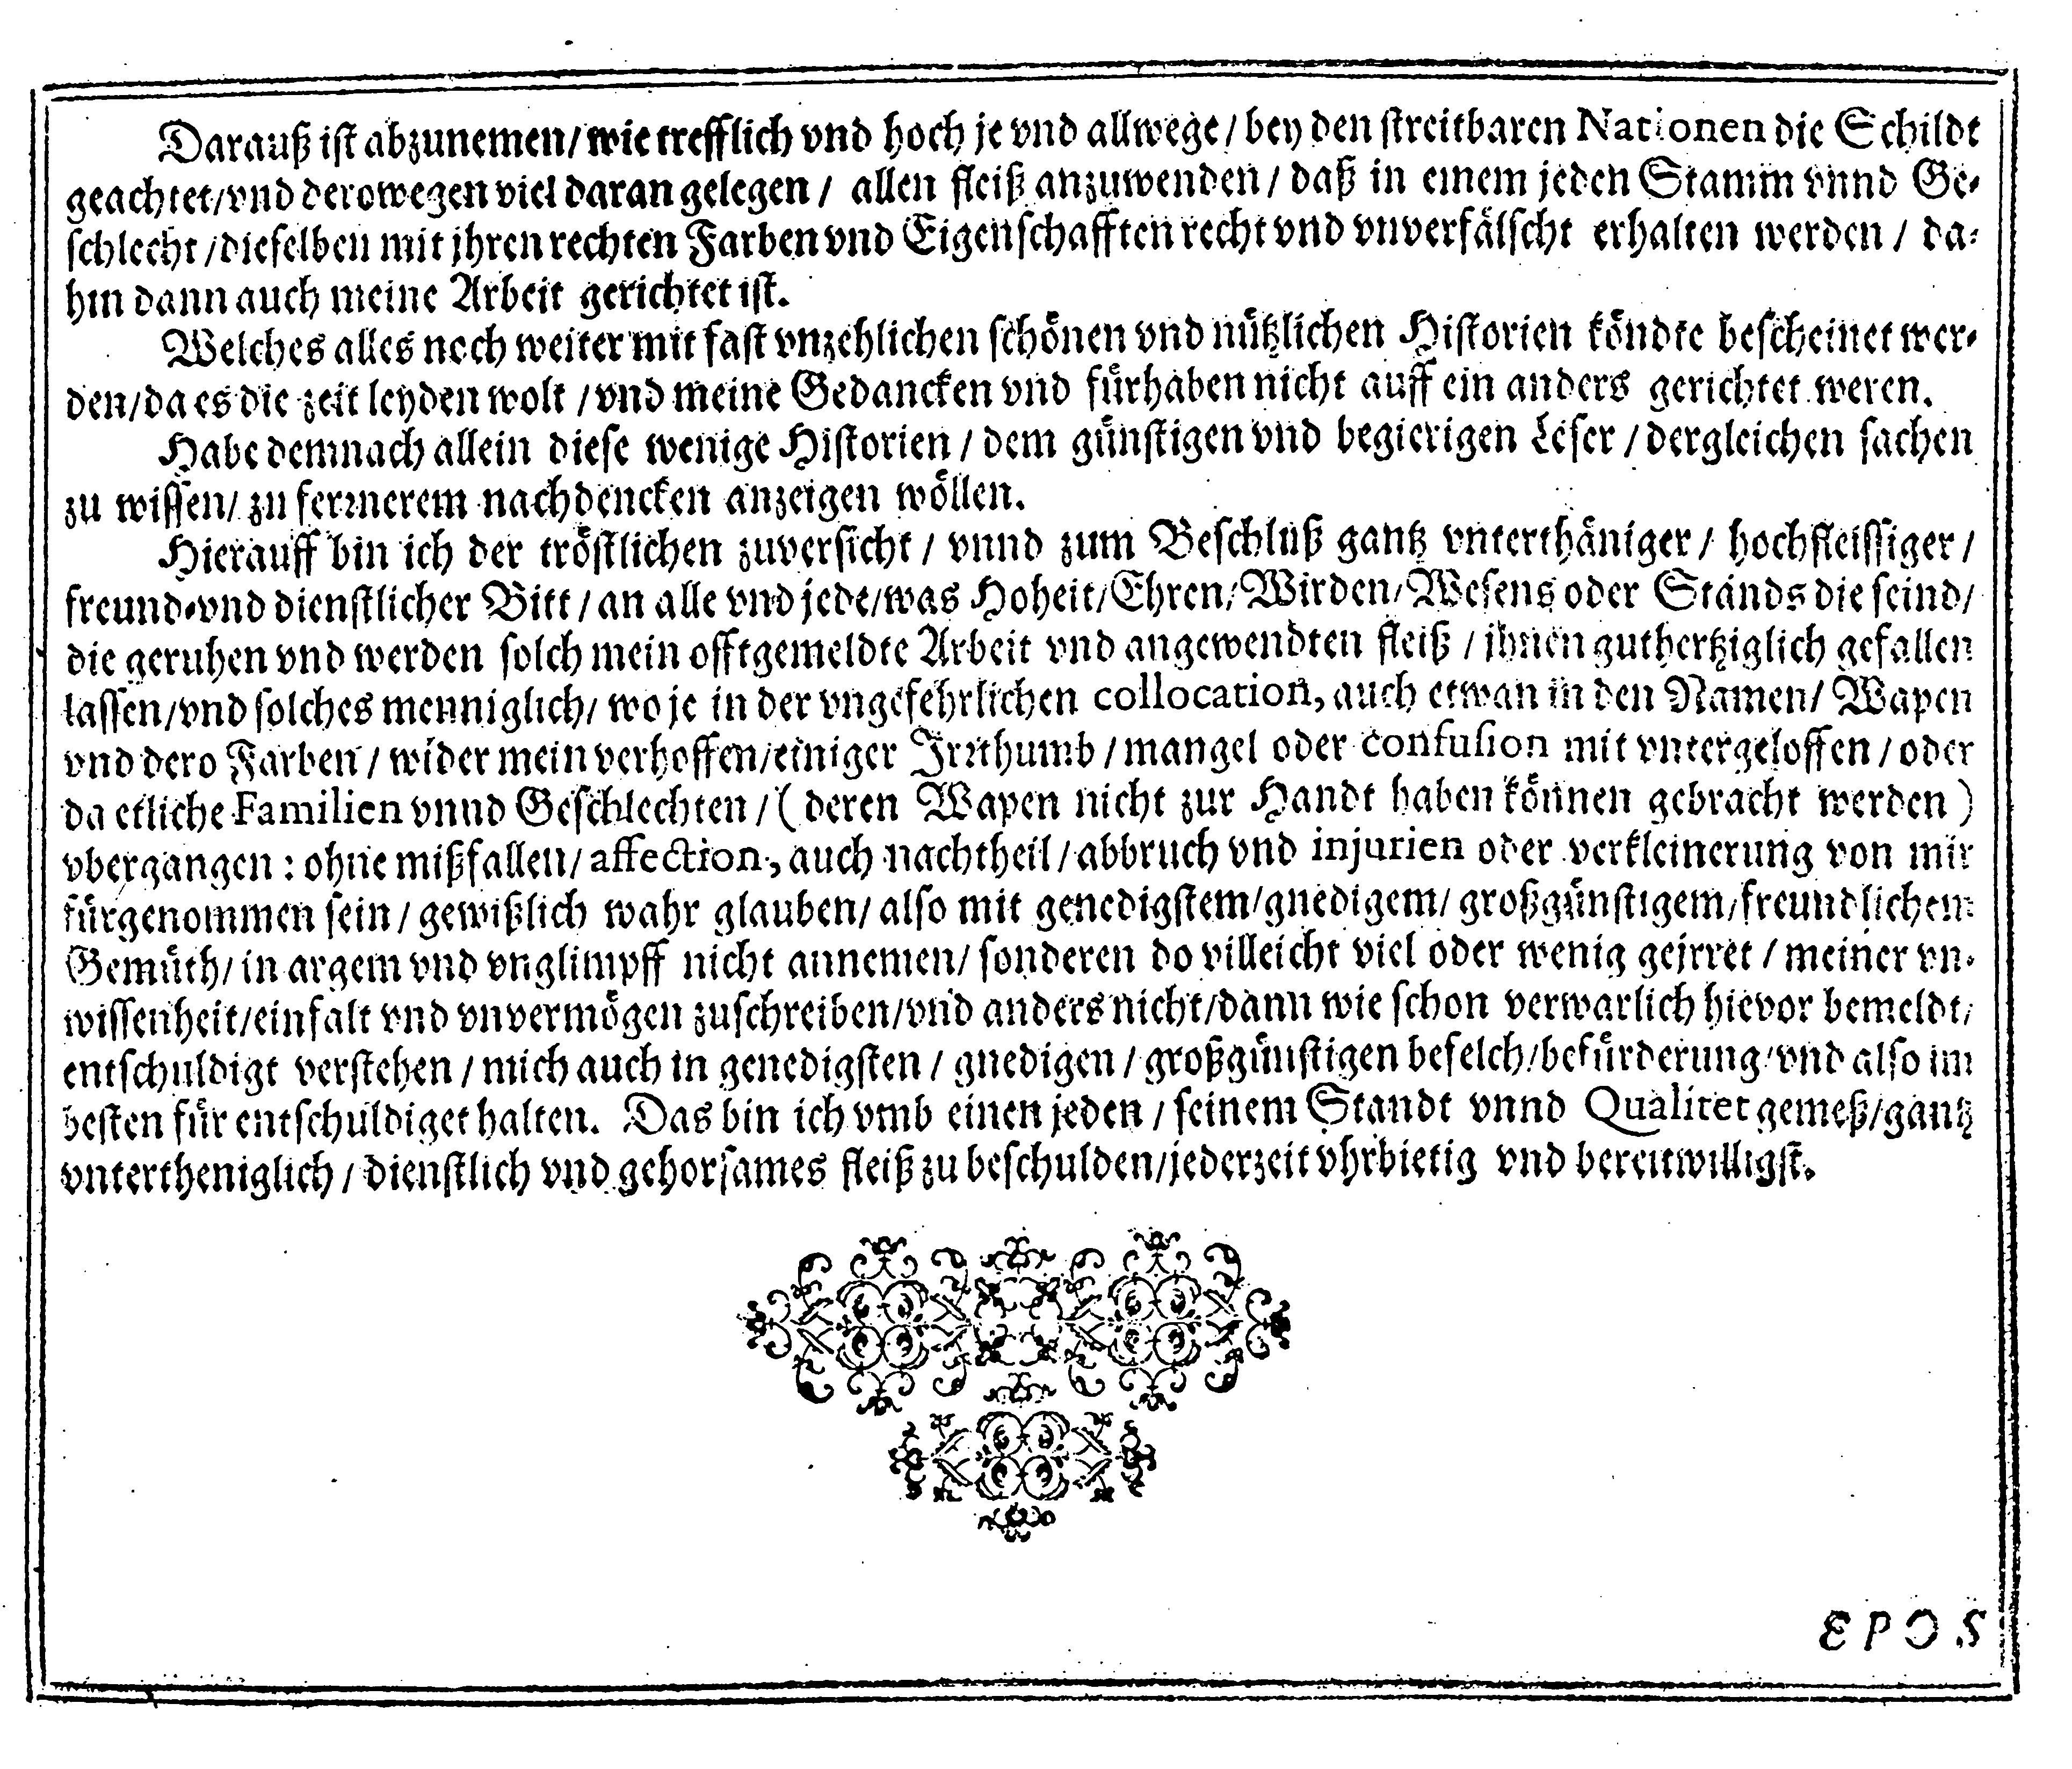 Darauß ist abzunemen/ wie trefflich vnd hoch je vnd allwege/ bey den streitbaren Nationen die Schildt
geachtet/vnd derowegen viel daran gelegen/ allen fleiß anzuwenden/ daß in einem jeden Stamm vnnd Ge-
schlecht/dieselben mit jhren rechten Farben vnd Eigenschafften recht vnd vnverfälscht erhalten werden/ da-
hin dann auch meine Arbeit gerichtet ist.
Welches alles noch weiter mit fast vnzehlichen schönen vnd nützlichen Historien köndte bescheinet wer-
den/da es die zeit leyden wolt/vnd meine Gedancken vnd fürhaben nicht auff ein anders gerichtet weren.
Habe demnach allein diese wenige Historien/ dem günstigen vnd begierigen Leser/dergleichen sachen
zu wissen/ zu fernerem nachdencken anzeigen wöllen.
Hierauff bin ich der tröstlichen zuversicht/ vnnd zum Beschluß gantz vnterthäniger/ hochfleissiger/
freund-vnd dienstlicher Bitt/an alle vnd jede/was Hoheit/Ehren/Wirden/Wesens oder Stands die seind/
die geruhen vnd werden solch mein offtgemeldte Arbeit vnd angewendten fleiß/ jhnen guthertziglich gefallen
lassen/vnd solches menniglich/ wo je in der vngefehrlichen collocation, auch etwan in den Namen/ Wapen
vnd dero Farben/ wider mein verhoffen/einiger Irrthumb/mangel oder confusion mit vntergeloffen/oder
da etliche Familien vnnd Geschlechten/(deren Wapen nicht zur Handt haben können gebracht werden)
vbergangen: ohne mißfallen/ affection, auch nachtheil/abbruch vnd injurien oder verkleinerung von mir
fürgenommen sein/gewißlich wahr glauben/also mit genedigstem/gnedigem/großgünstigem/freundlichem
Gemüth/in argem vnd vnglimpff nicht annemen/sonderen do villeicht viel oder wenig gejrret/meiner vn-
wissenheit/einfalt vnd vnvermögen zuschreiben/vnd anders nicht/dann wie schon verwarlich hievor bemeldt/
entschuldigt verstehen/mich auch in genedigsten/ gnedigen/großgünstigen befelch/befürderung/vnd also im
besten für entschuldiget halten. Das bin ich vmb einen jeden/seinem Standt vnnd Qualitet gemeß/gantz
vntertheniglich/dienstlich vnd gehorsames fleiß zu beschulden/jederzeit vhrbietig vnd bereitwilligst.
EPOS